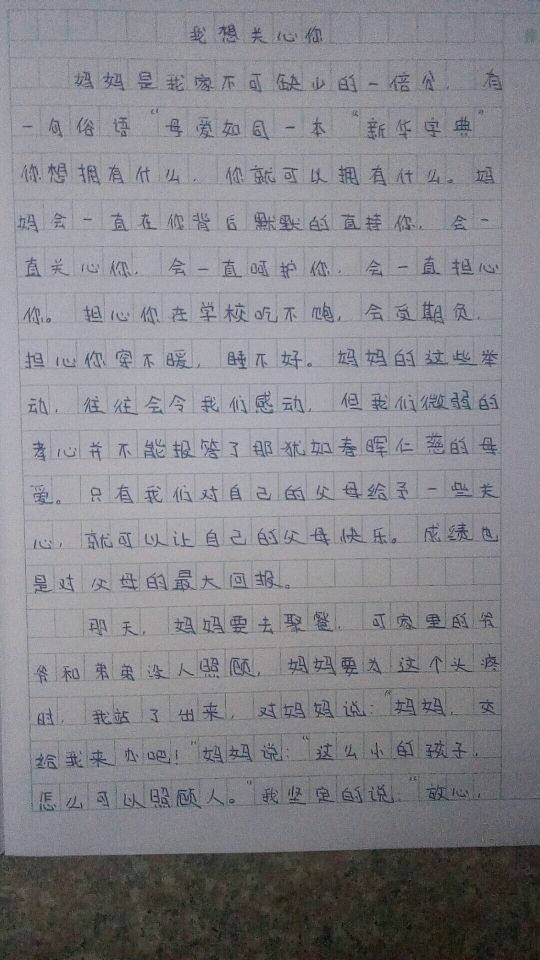 我想关心你
妈妈是我家不可缺少的一倍分，有
一句俗语“母爱如同一本“新华字典”
你想拥有什么，你就可以拥有什么。妈
妈会一直在你背后默默的直持你，会一
直关心你，会一直呵护你，会一直担心
你。担心你在学校吃不饱，会受期负，
担心你穿不暖，睡不好。妈妈的这些举
动，往往会令我们感动，但我们微弱的
孝心并不能报答了那犹如春晖仁慈的母
爱。只有我们对自己的父母给予一些关
心，就可以让自己的父母快乐。成绩也
是对父母的最大回报。
那天，妈妈要去聚餐，可家里的爷
爷和弟弟没人照顾，妈妈要为这个头疼
时，我站了出来，对妈妈说：“妈妈，交
给我来办吧！”妈妈说：“这么小的孩子，
怎么可以照顾人。”我坚定的说：“放心，